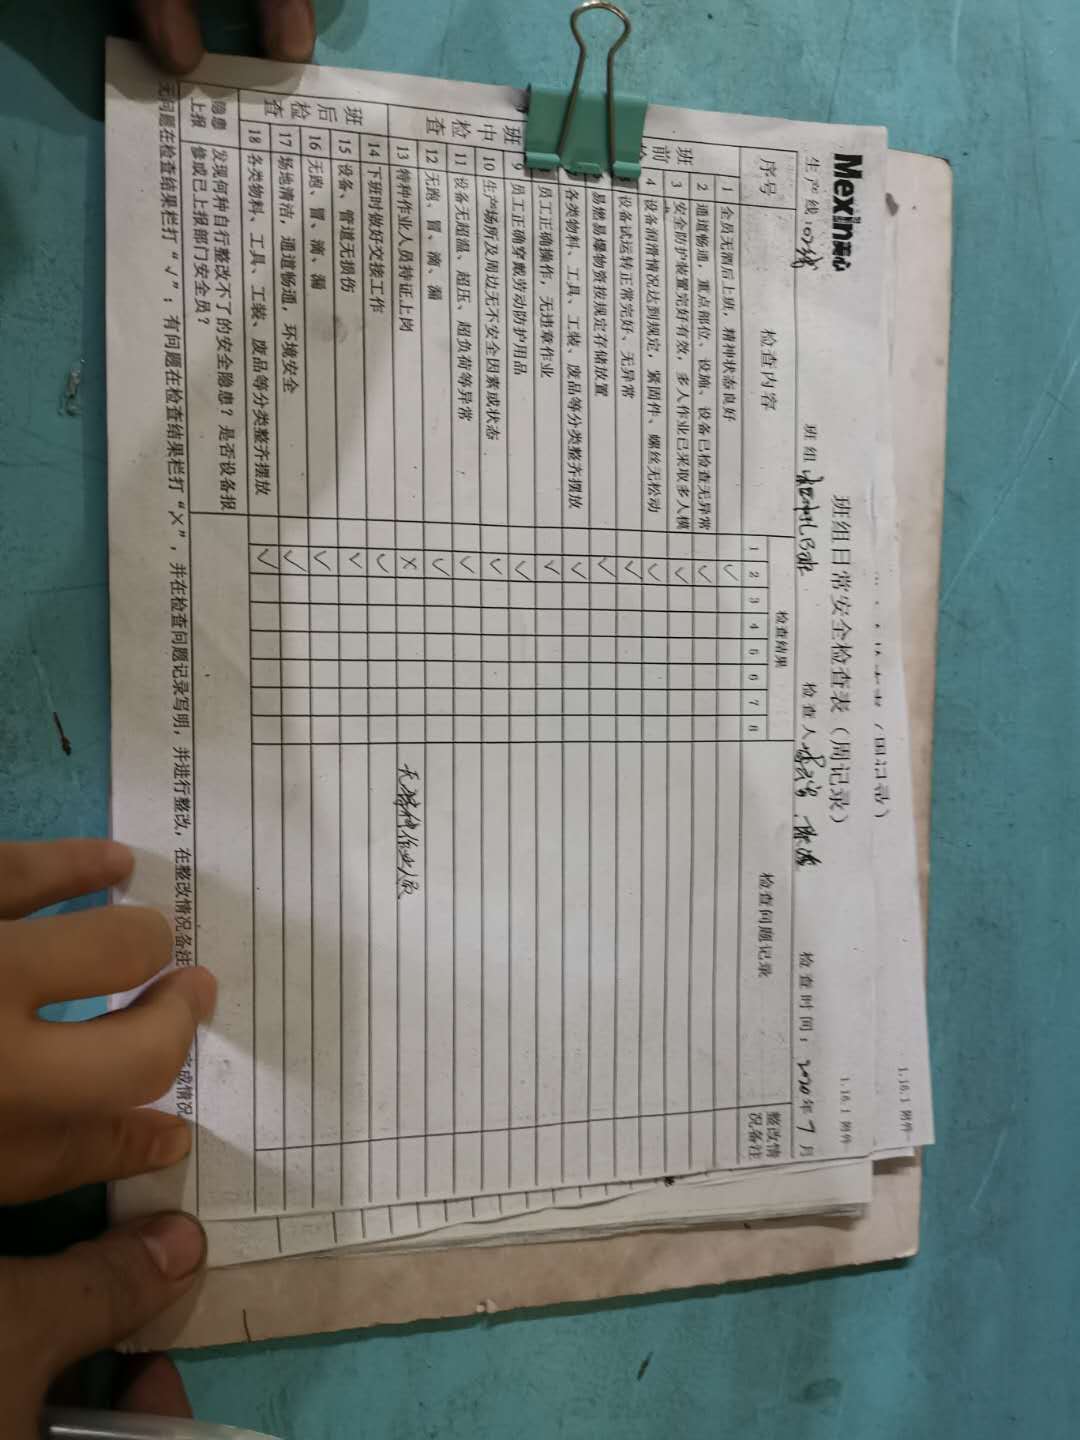 Mexin美心
1.16.1 附件
1.16.1 附件
班组日常安全检查表（周记录）
生产线：
班组：
检查人：
检查时间：2020年7月
序号
检查内容
检查结果
检查问题记录
整改情况备注
1 2 3 4 5 6 7 8
班前
1 全员无酒后上班，精神状态良好 √
2 通道畅通，重点部位、设施、设备已检查无异常 √
3 安全防护装置完好有效，多人作业已采取多人模 √
4 设备润滑情况达到规定，紧固件、螺丝无松动 √
设备试运转正常完好、无异常 √
易燃易爆物资按规定存储放置 √
各类物料、工具、工装、废品等分类整齐摆放 √
班中检查
员工正确操作，无违章作业 √
9 员工正确穿戴劳动防护用品 √
10 生产场所及周边无不安全因素或状态 √
11 设备无超温、超压、超负荷等异常 √
12 无跑、冒、滴、漏 √
13 特种作业人员持证上岗 × 无特种作业人员
班后检查
14 下班时做好交接工作 √
15 设备、管道无损伤 √
16 无跑、冒、滴、漏 √
17 场地清洁，通道畅通，环境安全 √
18 各类物料、工具、工装、废品等分类整齐摆放 √
隐患上报
发现何种自行整改不了的安全隐患？是否设备报
修或已上报部门安全员？
无问题在检查结果栏打“√”；有问题在检查结果栏打“×”，并在检查问题记录写明，并进行整改，在整改情况备注 完成情况